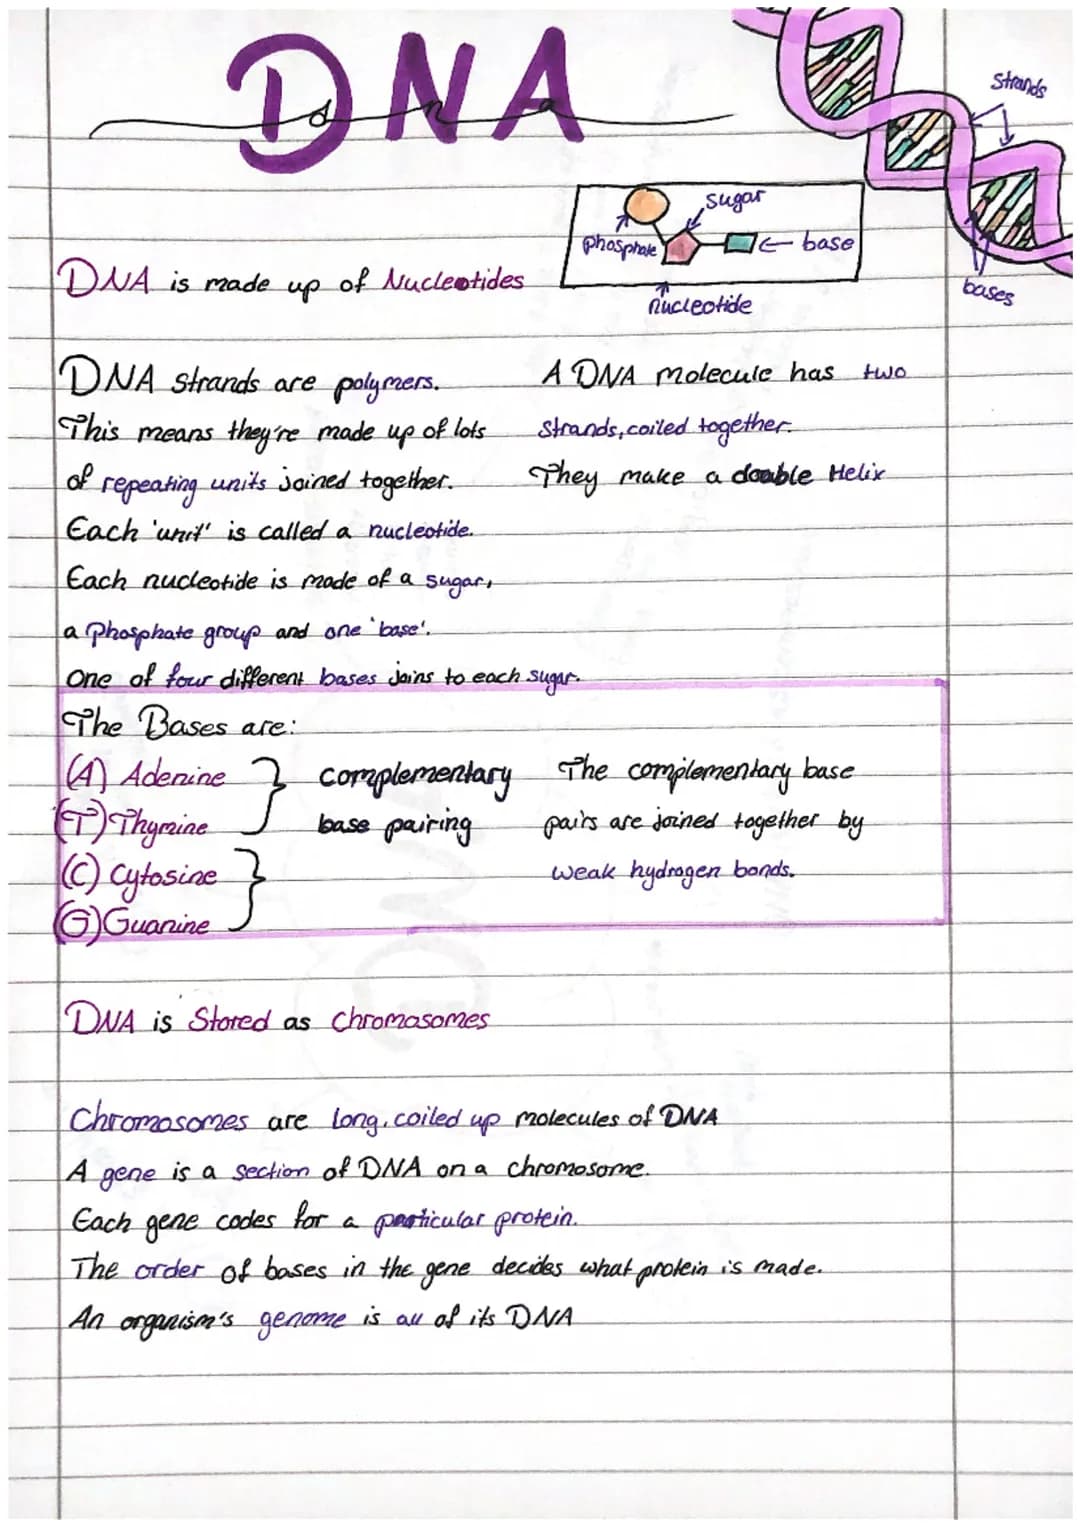 DNA
dna
strands
sugar
phosphate
base
bases
nucleotide
DNA is made up of Nucleotides
DNA strands are polymers.
This means they're made up of lots
of repeating units joined together.
Each 'unit' is called a nucleotide.
Each nucleotide is made of a sugar,
a Phosphate group and one 'base'.
One of four different bases joins to each sugar.
A DNA molecule has two
strands, coiled together.
They make a double Helix
The Bases are:
(A) Adenine
(T) Thymine
(C) Cytosine
(G) Guanine
complementary
base pairing
The complementary base
pairs are joined together by
weak hydrogen bonds.
DNA is Stored as Chromosomes
Chromosomes are long, coiled up molecules of DNA
A gene is a section of DNA on a chromosome.
Each gene codes for a particular protein.
The order of bases in the gene decides what protein is made.
An organism's genome is all of its DNA